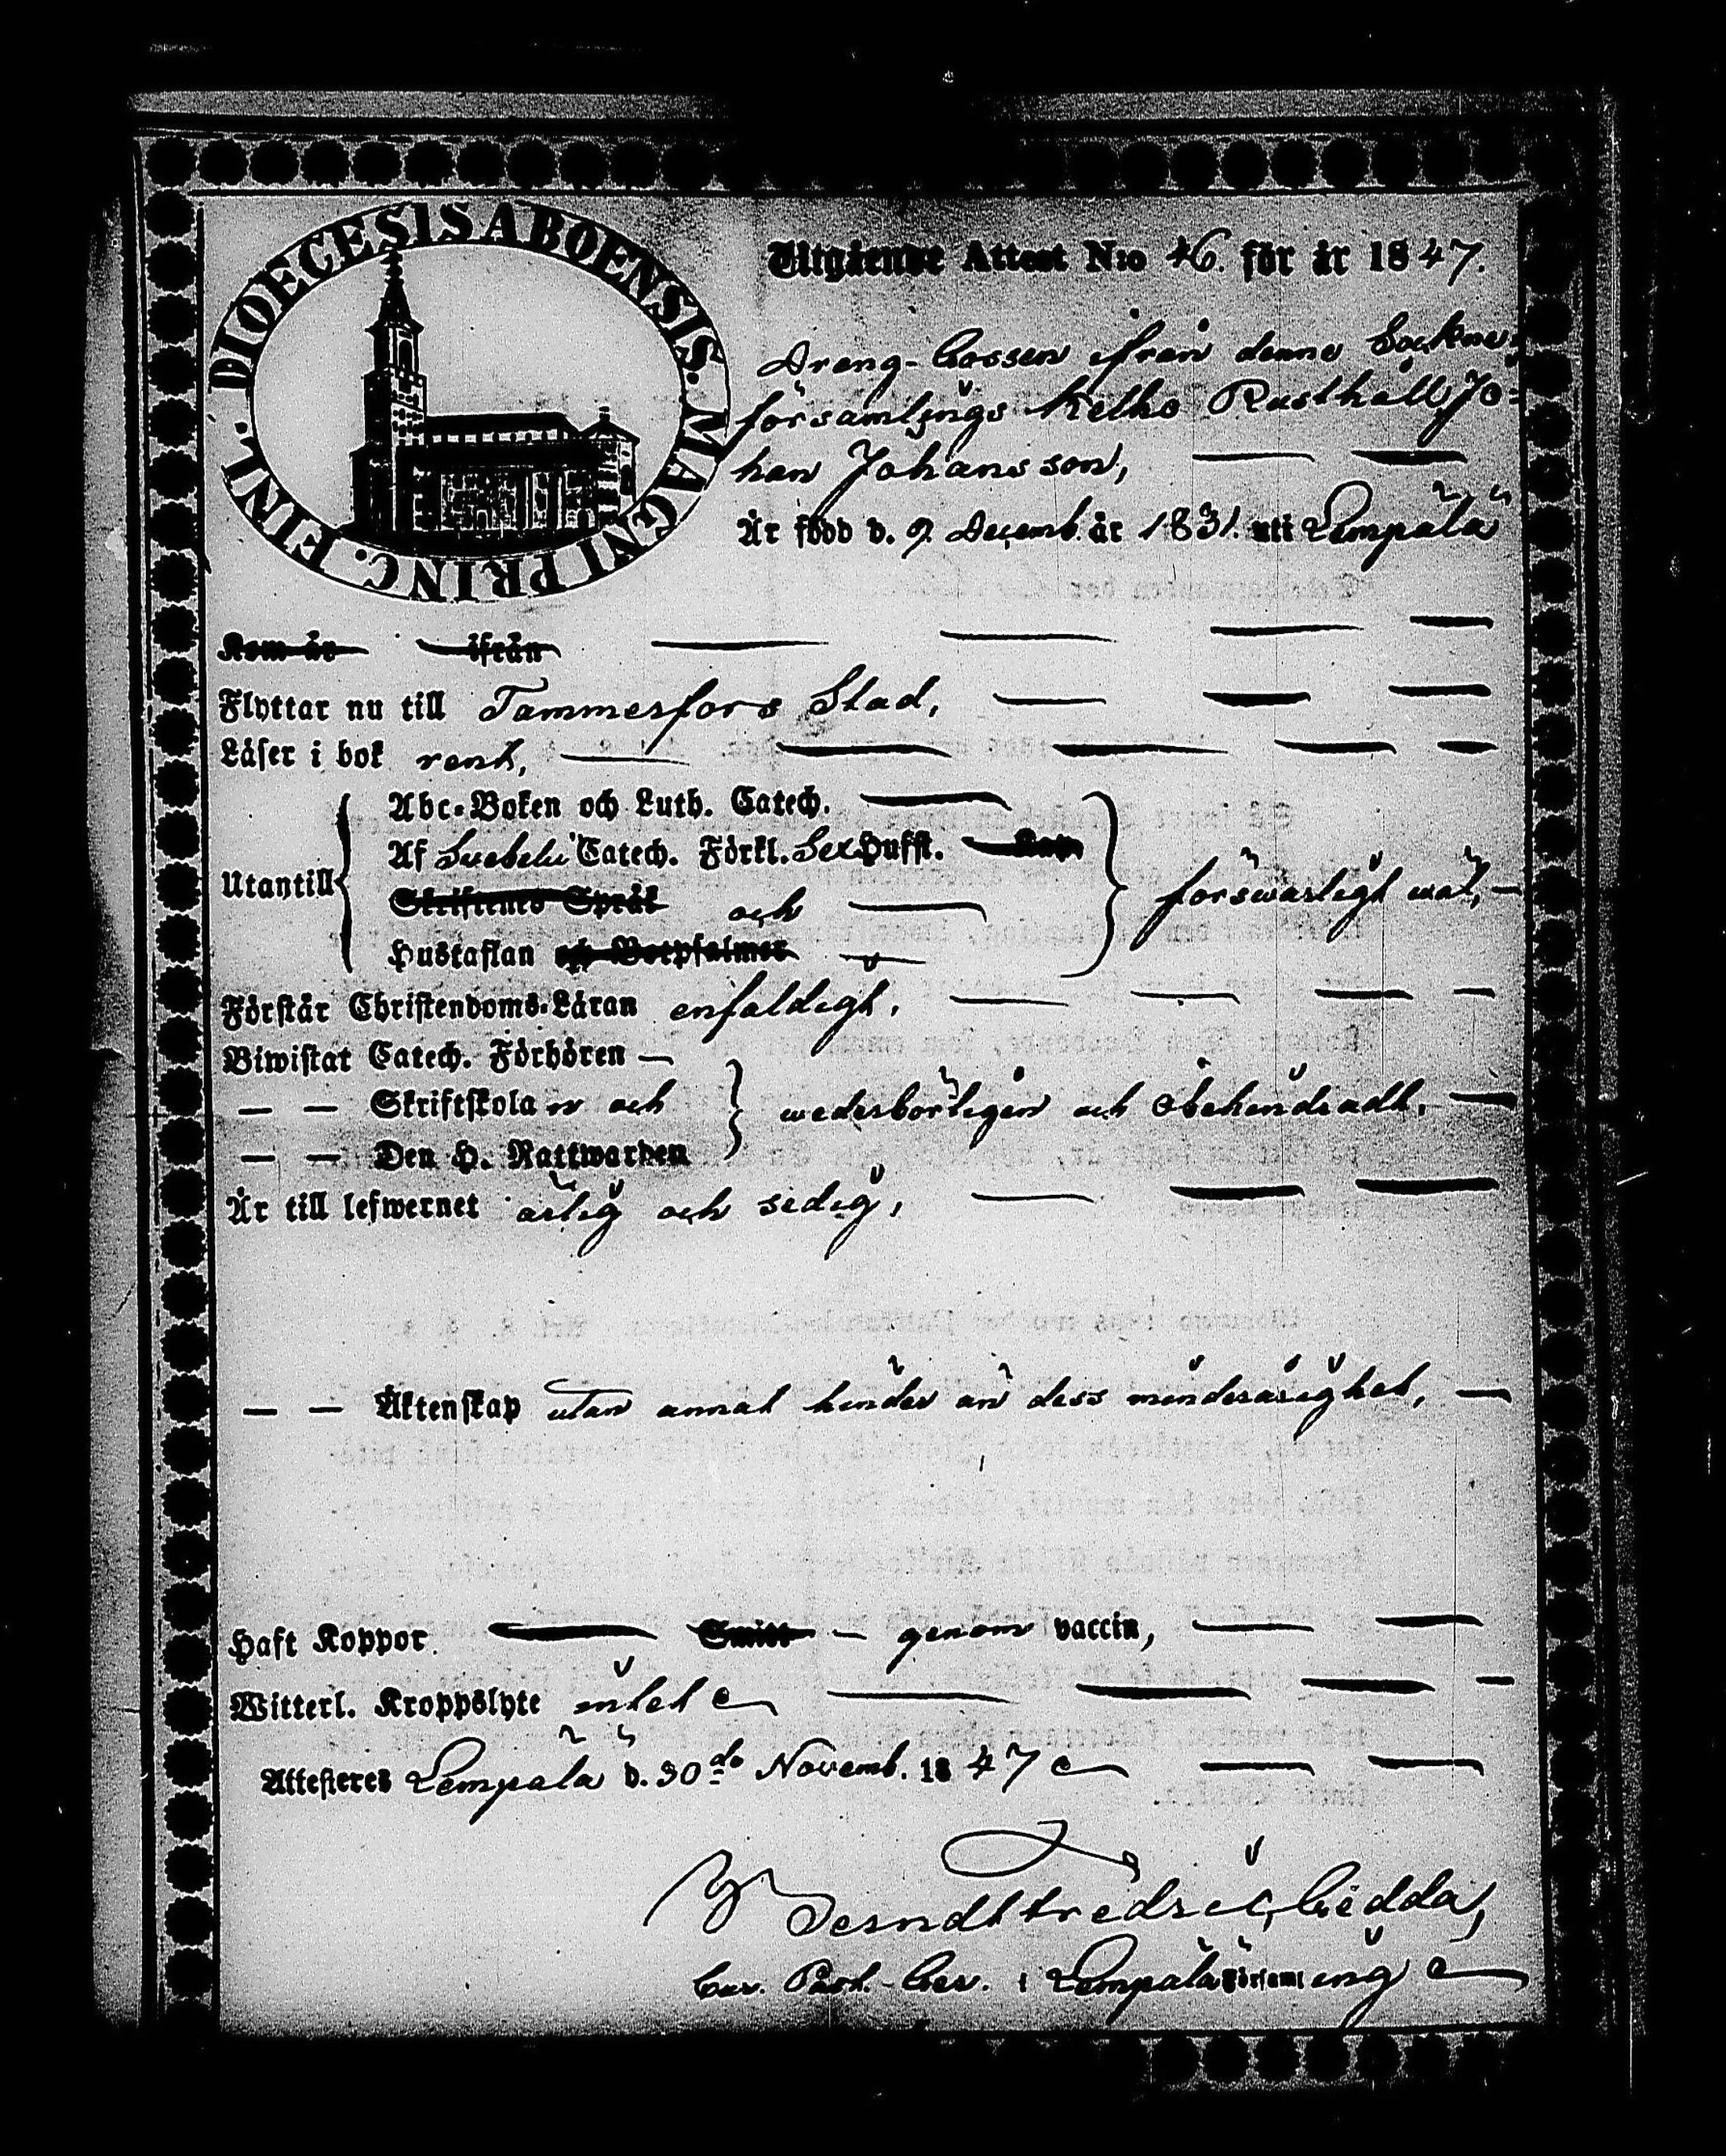 DIOECESIS ABOENSIS. MAGNI PRINC. FINL.
Utgående Attest N:o 46. för år 1847.
Dreng-Gossen ifrån denne Sockne-
församlings Kelho Rusthåll Jo-
han Johansson,
Är född d. 9 Decemb. år 1831. uti Lempälä
Kom år ifrån
Flyttar nu till Tammerfors Stad,
Läser i bok rent,
Abc-Boken och Luth. Catech.
Af Svebelii Catech. Förkl. Sex Hufst. Kap
Utantill försvarligt väl,
Skriftenes Språk och
Hustaflan och Botpsalmer
Förstår Christendoms-Läran enfaldigt,
Biwistat Catech. Förhören
— — Skriftskolan och wederbörligen och obehindradt.
— — Den H. Nattwarden
Är till lefwernet ärlig och sedig,
— — Äktenskap utan annat hinder än dess minderårighet,
Haft Koppor Smitt genom vaccin,
Witterl. Kroppslyte intet
Attesteras Lempälä d. 30de Novemb. 1847
Berndt Fredric Gedda,
i Lempälä Församling